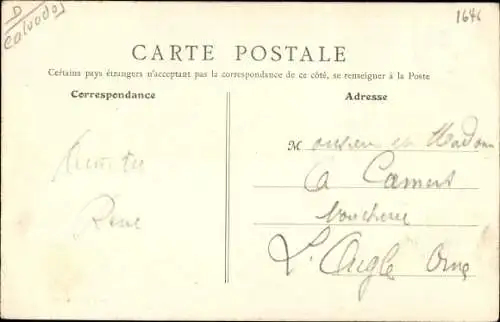 D
Calvados
1646
CARTE POSTALE
Certains pays étrangers n'acceptant pas la correspondance de ce côté, se renseigner à la Poste
Correspondance
Adresse
Monsieur et Madame
A Camus
René
L'Aigle Orne